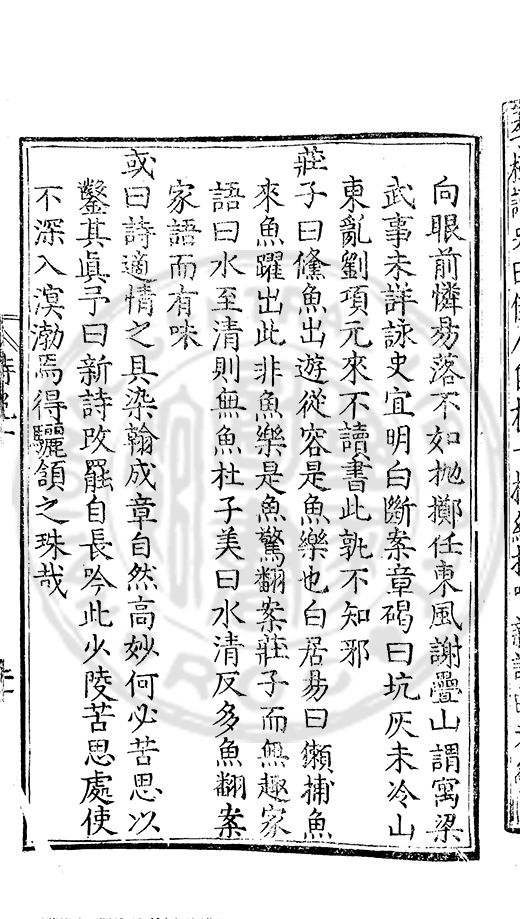 向眼前憐易落不如抛擲任東風謝疊山謂寓梁
武事未詳詠史宜明白斷案章碣曰坑灰未冷山
東亂劉項元來不讀書此孰不知邪
莊子曰鯈魚出遊從容是魚樂也白居易曰獺捕魚
來魚躍出此非魚樂是魚驚翻案莊子而無趣家
語曰水至清則無魚杜子美曰水清反多魚翻案
家語而有味
或曰詩適情之具染翰成章自然高妙何必苦思以
鑿其真予曰新詩改罷自長吟此少陵苦思處使
不深入溟渤焉得驪頷之珠哉